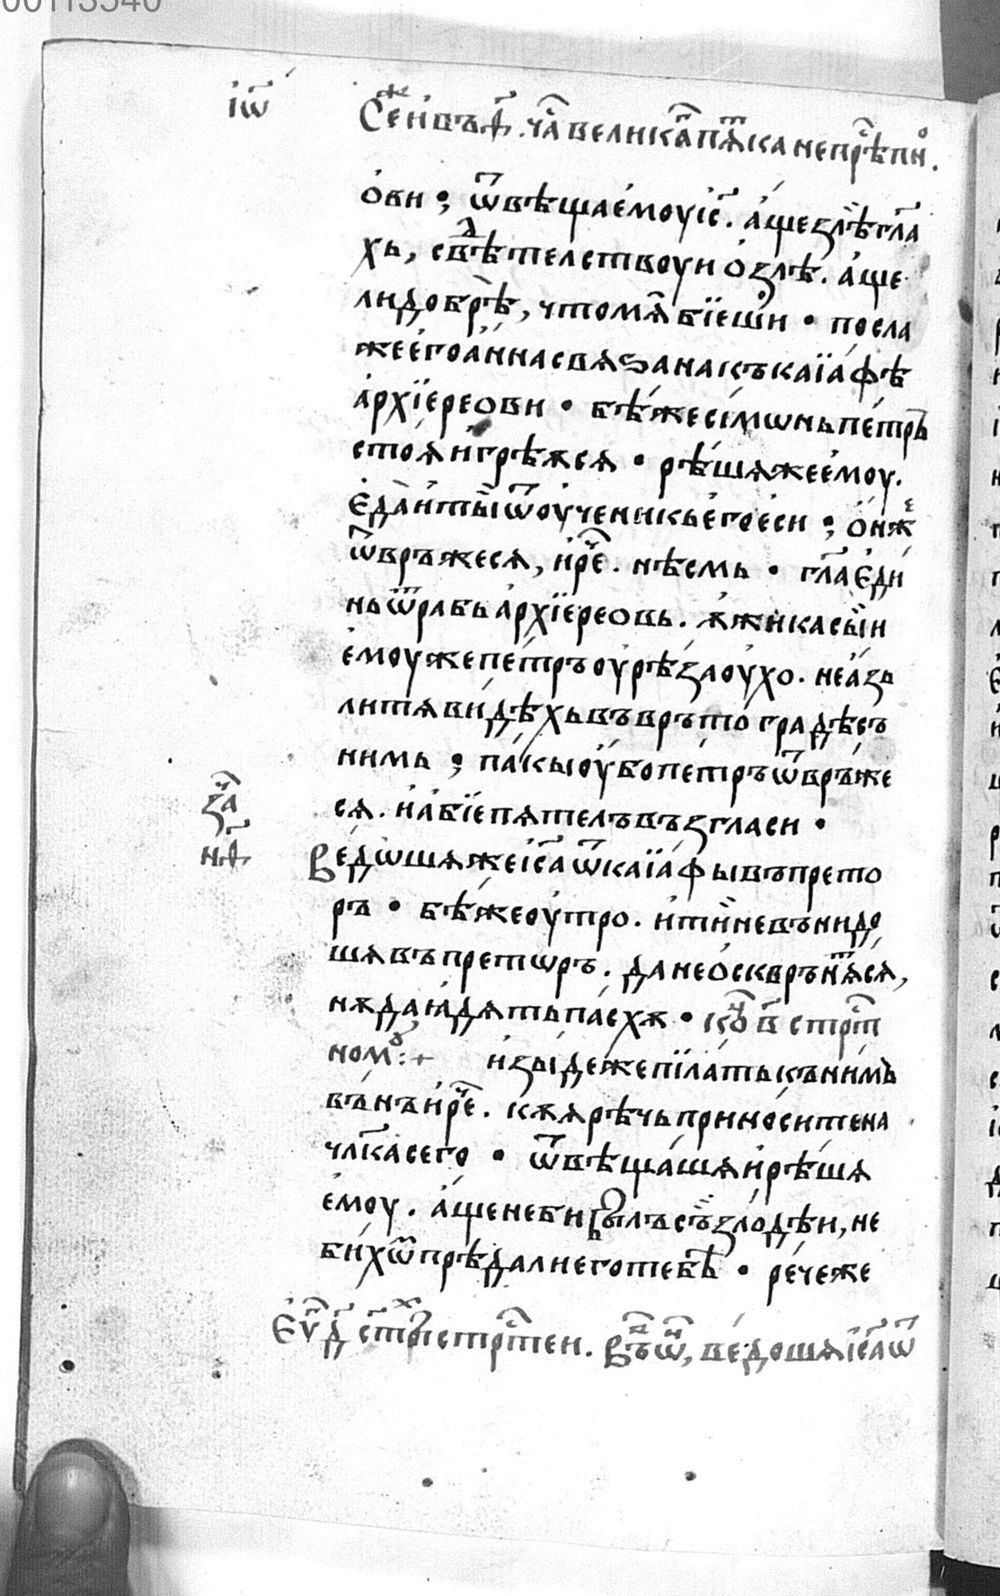 00113540
іѡ҃
Се́жⷣ и҆ въ ѳ҃. ча҇ великаⷢ҇ пѧⷮка непрⷣѣпнⷪ҇.
о҆ви ; ѿвѣща е҆моу і҆с҃. а҆ще злѣ̀ гл҃а
хь, свⷣѣтелствоуи ѡ҆ злѣ. а҆ще
ли добрѣ̀, что мѧ̀ бїеши • посла
же е҆го а҆нна свѧꙃана къ каїа́фѣ
а҆рхїе́реови • бѣ́ же сі́мѡнь пе́трь
стоѧ̀ и҆ грѣѫсѧ • рѣ́шѧ же е҆моу.
є҆да̀ и҆ ты̀ ѿ оу҆ченикь е҆го е҆си ; о҆н жⷷ
ѿвръжесѧ, и҆ рⷱ҇е. нѣсмь • гл҃а є҆ди́
нь ѿ рабь а҆рхїе́реовь. ѫ҆жи́ка сы̀и
е҆моуже пе́трь оу҆рѣ́за оу҆́хо. не а҆́зь
ли тѧ ви́дѣхь въ връто́градѣ съ
нимь ; па́кы оу҆́бо пе́тръ ѿвръ́же
сѧ. и҆ а҆́бїе пѧ́телъ възгласи •
за҇ч
н҃ѳ
Ве́дѡшѧ же і҆с҃а ѿ каїа́фы въ прето
ръ • бѣ́ же оу҆́тро. и҆ ти̏ не въ нидо
шѧ въ претѡръ. да не ѡ҆скврънѧⷮсѧ,
нѫ да ꙗ҆дѧть па́схѫ • коⷰ҇ в҃ стрⷭ҇т
номꙋ҇ :+ и҆зы́де же пїла́ть къ ни́мь
въ́нъ и҆ рⷱ҇е. кѫѧ рѣ́чь прино́сите на
чл҃ка сего • ѿвѣща́шѧ и҆ рѣ́шѧ
е҆моу. а҆́ще не би былъ сь̏ злодѣ́и, не
би́хѡⷨ прѣдали е҆го тебѣ̀ • ре́че же
Єѵⷢ҇ д҃ стⷯы стрⷭ҇тен. въ ѡ҆н, ве́дошѧ і҆с҃а ѿ